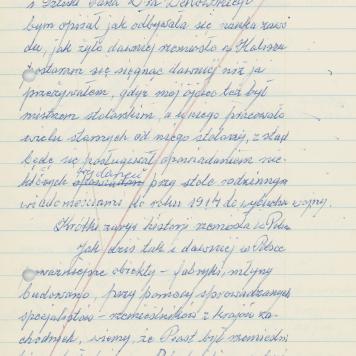 bym opisał jak odbywała się nauka zawo
du, jak żyło dawniej rzemiosło w
postaram się sięgnąc dawniej niż ja
przeżywałem, gdyż mój ojciec też był
mistrzem stolarskim, a u niego pracowało
wielu starszych od niego stolarzy, z stąd
będę się posługiwał opowiadaniem nie-
których przy stole rodzinnym
wiadomościami do roku 1914 do wybuchu wojny.
Krótki zarys historji rzemiosła w
Jak dziś tak i dawniej w Polsce
poważniejsze obiekty - fabryki, młyny
budowano, przy pomocy sprowadzanych
specjalistów - rzemieślników z krajów za-
chodnich, wiemy, że Piast był